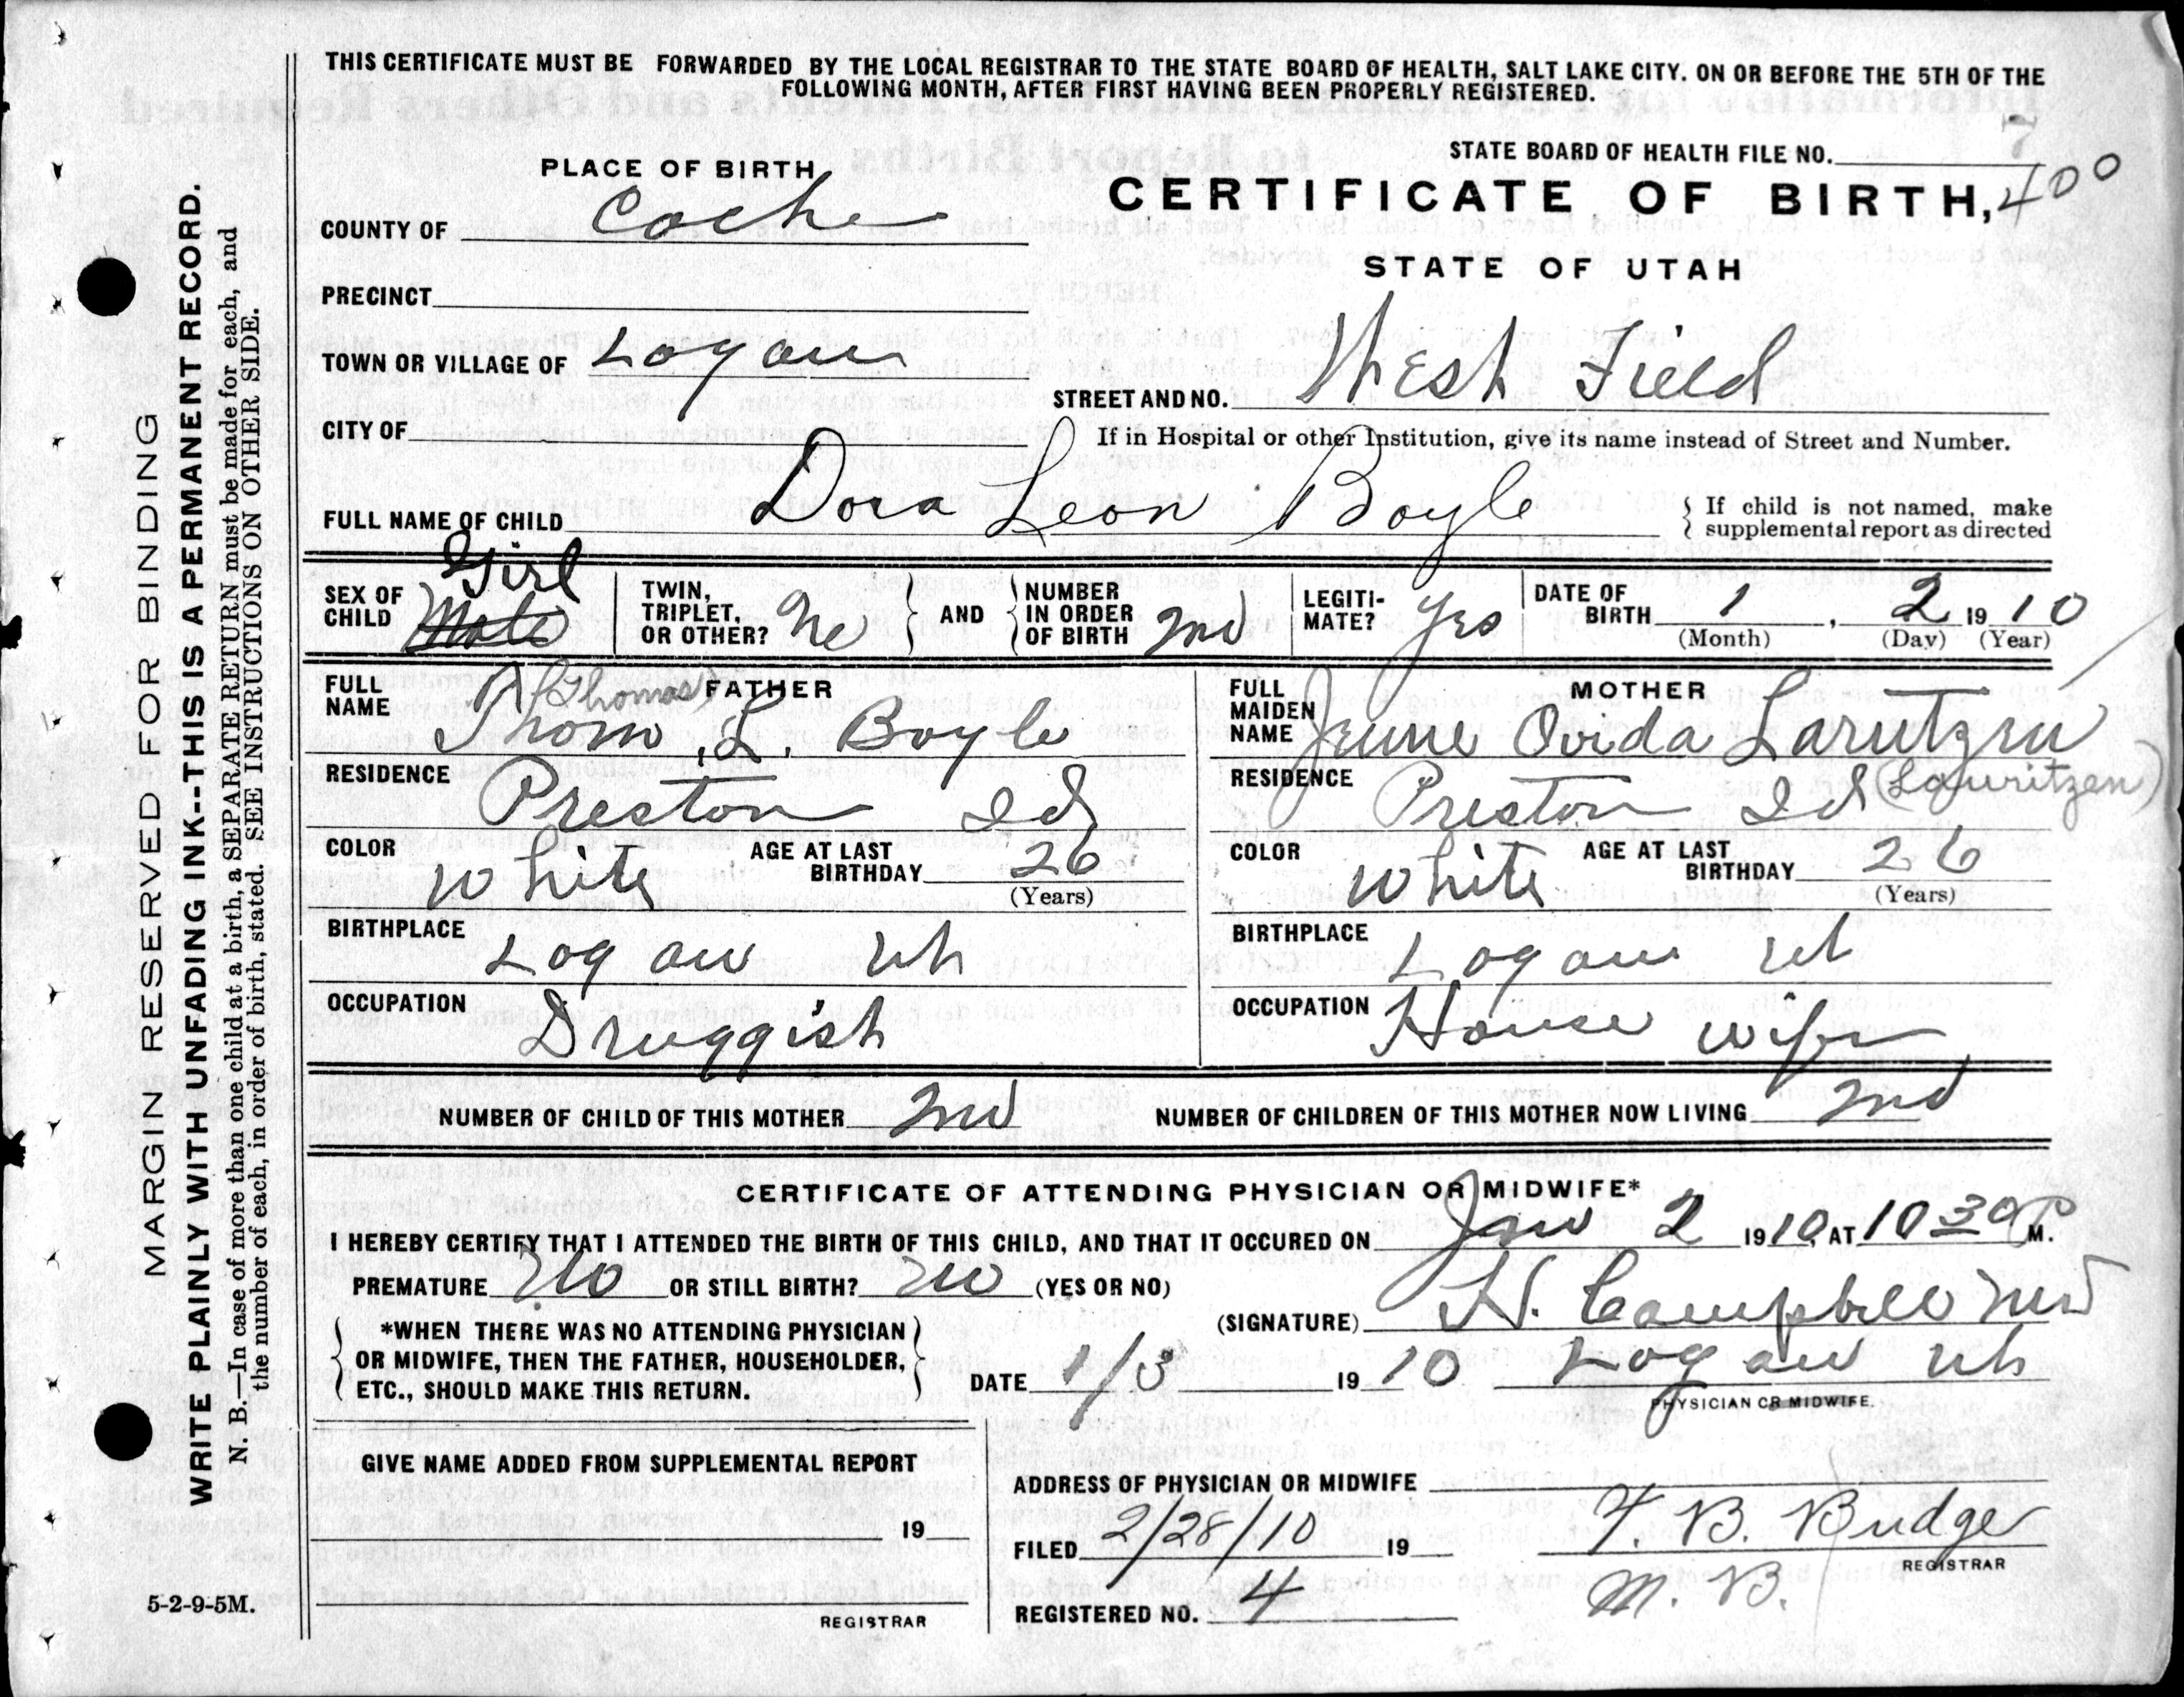 THIS CERTIFICATE MUST BE FORWARDED BY THE LOCAL REGISTRAR TO THE STATE BOARD OF HEALTH, SALT LAKE CITY. ON OR BEFORE THE 5TH OF THE
FOLLOWING MONTH, AFTER FIRST HAVING BEEN PROPERLY REGISTERED.
MARGIN RESERVED FOR BINDING
WRITE PLAINLY WITH UNFADING INK--THIS IS A PERMANENT RECORD.
N. B.—In case of more than one child at a birth, a SEPARATE RETURN must be made for each, and
the number of each, in order of birth, stated. SEE INSTRUCTIONS ON OTHER SIDE.
5-2-9-5M.
7
STATE BOARD OF HEALTH FILE NO.
400
CERTIFICATE OF BIRTH,
STATE OF UTAH
PLACE OF BIRTH
COUNTY OF Cache
PRECINCT
TOWN OR VILLAGE OF Logan
STREET AND NO. West Field
CITY OF
If in Hospital or other Institution, give its name instead of Street and Number.
FULL NAME OF CHILD Dora Leon Boyle
If child is not named, make
supplemental report as directed
SEX OF CHILD Girl Male
TWIN, TRIPLET, OR OTHER? No
AND
NUMBER IN ORDER OF BIRTH 2nd
LEGITIMATE? Yes
DATE OF BIRTH 1, 2 1910
(Month) (Day) (Year)
FATHER
FULL NAME (Thomas) Thom. L. Boyle
RESIDENCE Preston Id
COLOR White AGE AT LAST BIRTHDAY 26
(Years)
BIRTHPLACE Logan Uh
OCCUPATION Druggist
MOTHER
FULL MAIDEN NAME Ovida Larutzen
(Lauritzen)
RESIDENCE Preston Id
COLOR White AGE AT LAST BIRTHDAY 26
(Years)
BIRTHPLACE Logan Ut
OCCUPATION House wife
NUMBER OF CHILD OF THIS MOTHER 2nd NUMBER OF CHILDREN OF THIS MOTHER NOW LIVING 2nd
CERTIFICATE OF ATTENDING PHYSICIAN OR MIDWIFE*
I HEREBY CERTIFY THAT I ATTENDED THE BIRTH OF THIS CHILD, AND THAT IT OCCURED ON Jan 2 1910, AT 10 30 P M.
PREMATURE No OR STILL BIRTH? No (YES OR NO)
(SIGNATURE) H. Campbell MD
*WHEN THERE WAS NO ATTENDING PHYSICIAN
OR MIDWIFE, THEN THE FATHER, HOUSEHOLDER,
ETC., SHOULD MAKE THIS RETURN.
DATE 1/3 1910 Logan Uh
PHYSICIAN OR MIDWIFE.
GIVE NAME ADDED FROM SUPPLEMENTAL REPORT
19
REGISTRAR
ADDRESS OF PHYSICIAN OR MIDWIFE
FILED 2/28/10 19
T. B. Budge
REGISTRAR
M. B.
REGISTERED NO. 4